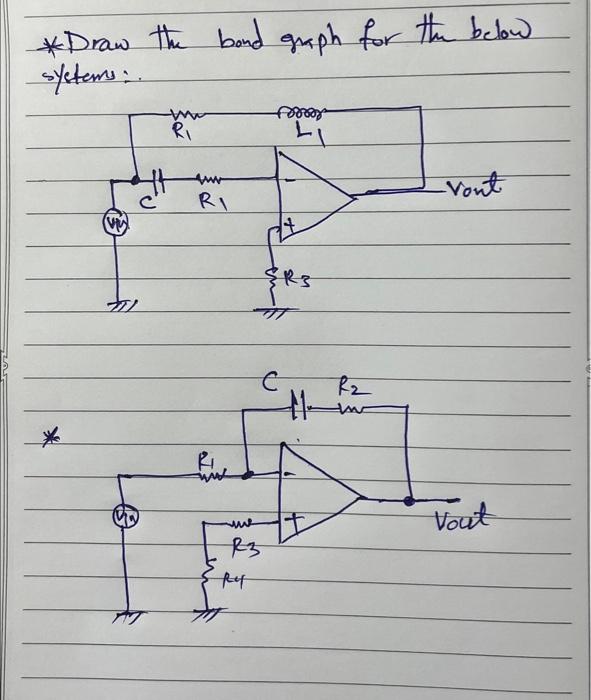 *Draw the bond graph for the below
systems:.
R1
L1
C
R1
-
Vout
Vin
+
R3
C
R2
*
R1
-
Vin
+
Vout
R3
R4